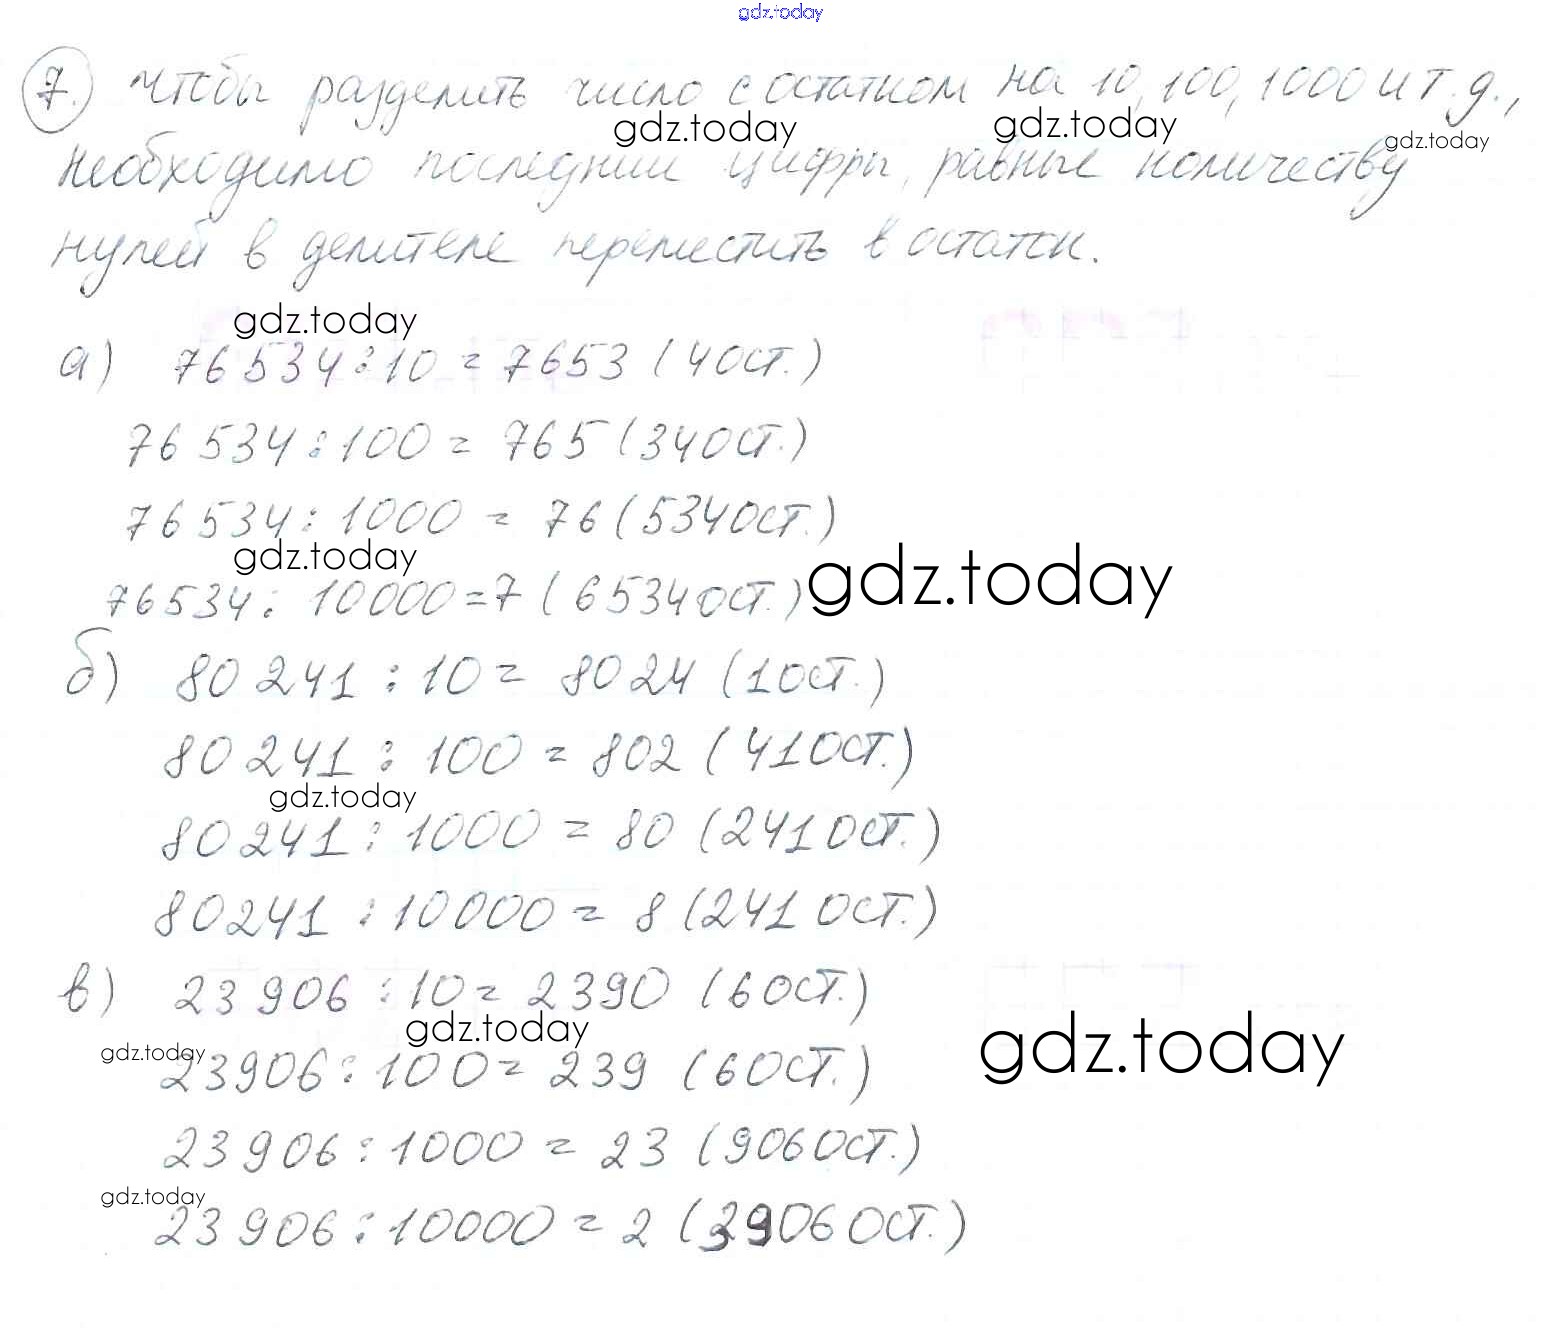 gdz.today
7. Чтобы разделить число с остатком на 10, 100, 1000 и т.д.,
gdz.today gdz.today gdz.today
необходимо последнии цифры, равные количеству
нулей в делителе переместить в остаток.
gdz.today
а) 76 534 : 10 = 7653 (4 ост.)
76 534 : 100 = 765 (34 ост.)
76 534 : 1000 = 76 (534 ост.)
gdz.today
gdz.today
76534 : 10000 = 7 (6534 ост.)
б) 80 241 : 10 = 8024 (1 ост.)
80 241 : 100 = 802 (41 ост.)
gdz.today
80 241 : 1000 = 80 (241 ост.)
80241 : 10000 = 8 (241 ост.)
в) 23 906 : 10 = 2390 (6 ост.)
gdz.today
gdz.today
gdz.today
23906 : 100 = 239 (6 ост.)
23 906 : 1000 = 23 (906 ост.)
gdz.today
23 906 : 10000 = 2 (3906 ост.)